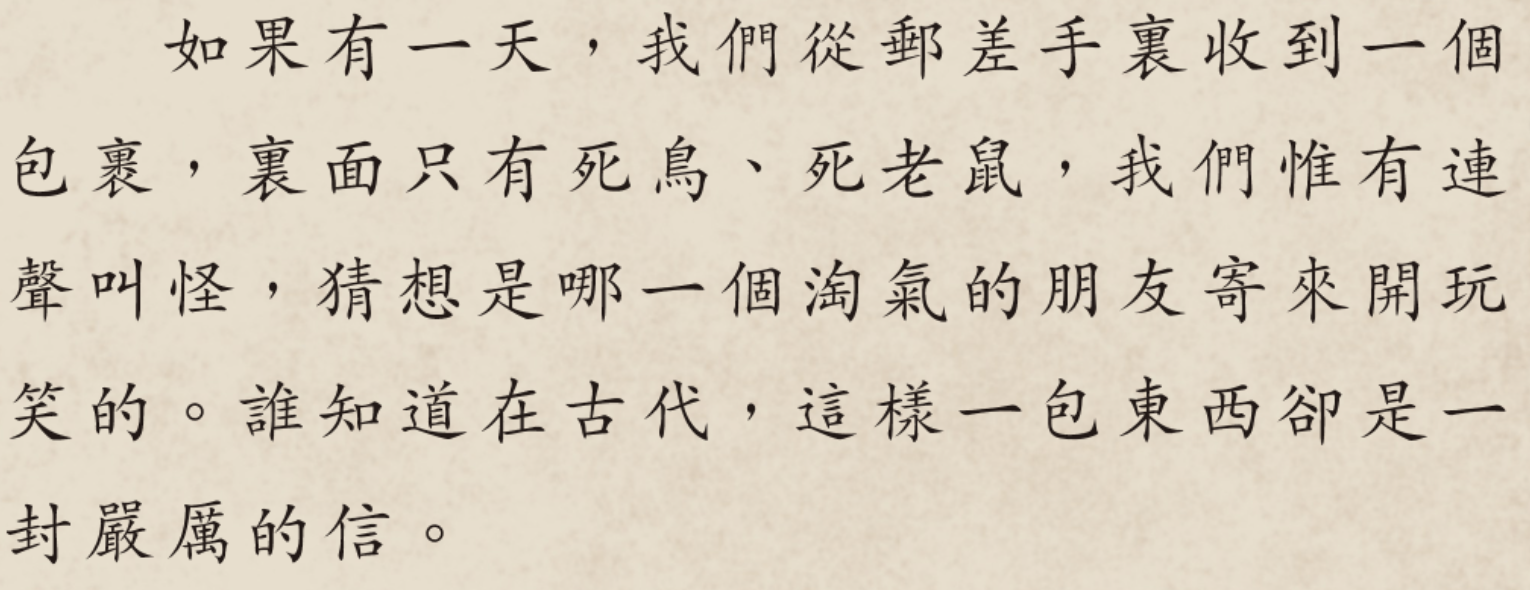 如果有一天，我們從郵差手裏收到一個
包裹，裏面只有死鳥、死老鼠，我們惟有連
聲叫怪，猜想是哪一個淘氣的朋友寄來開玩
笑的。誰知道在古代，這樣一包東西卻是一
封嚴厲的信。